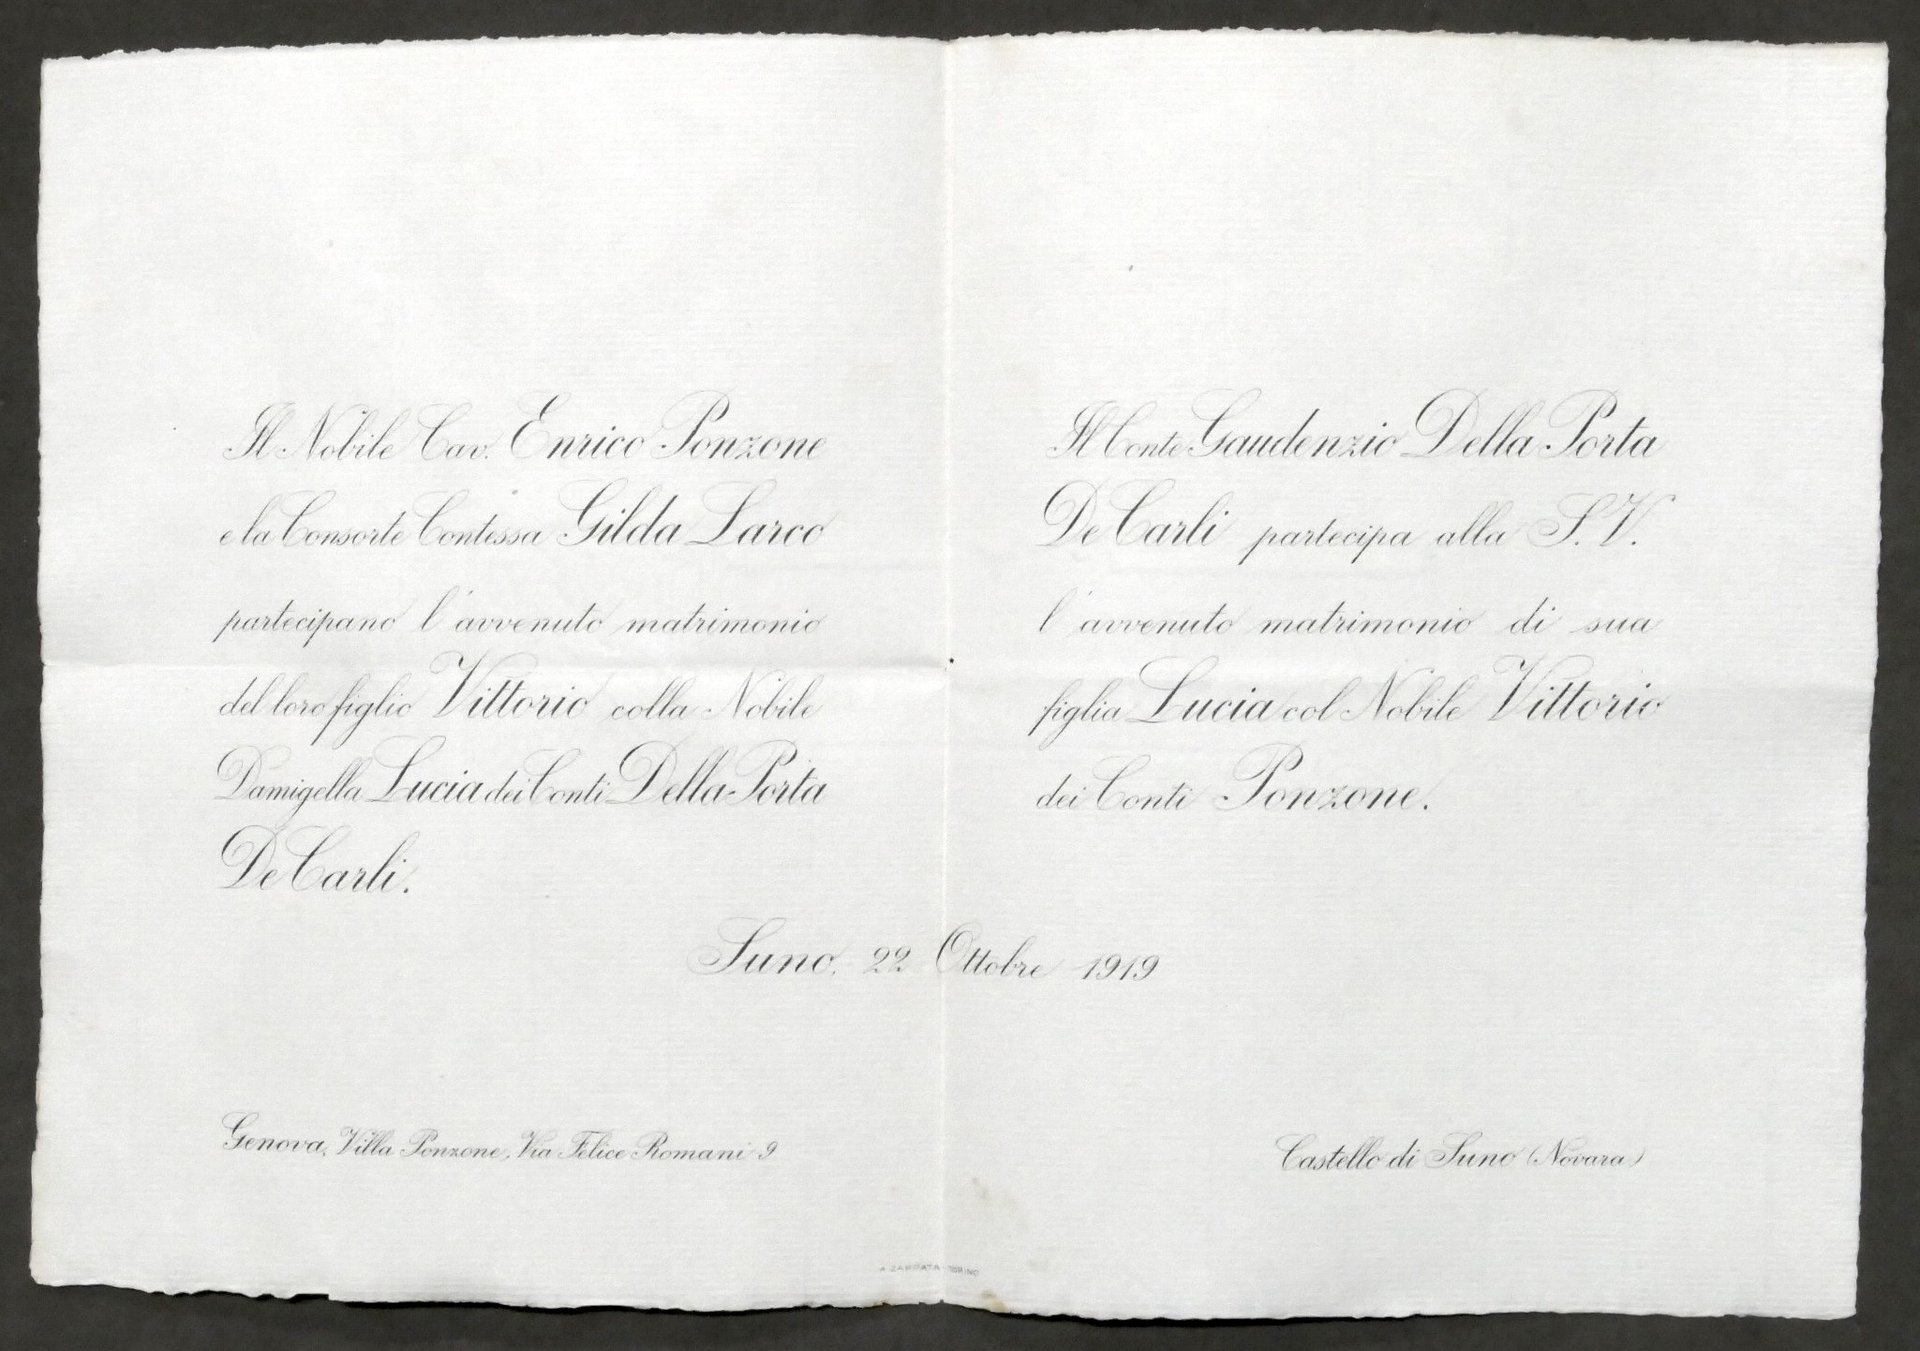 Il Nobile Cav. Enrico Ponzone
e la Consorte Contessa Gilda Larco
partecipano l'avvenuto matrimonio
del loro figlio Vittorio colla Nobile
Damigella Lucia dei Conti Della Porta
De Carli.
Il Conte Gaudenzio Della Porta
De Carli partecipa alla S.V.
l'avvenuto matrimonio di sua
figlia Lucia col Nobile Vittorio
dei Conti Ponzone.
Suno, 22 Ottobre 1919
Genova, Villa Ponzone, Via Felice Romani 9
Castello di Suno (Novara)
TORINO